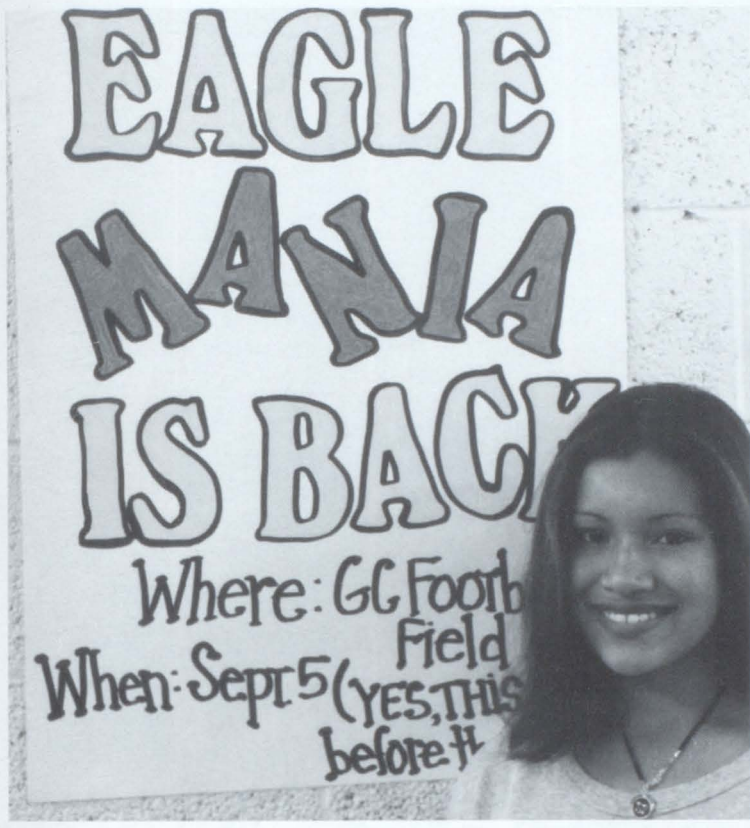 EAGLE
MANIA
IS BACK
Where: GC Footb
Field
When: Sept. 5 (YES, THIS
before th